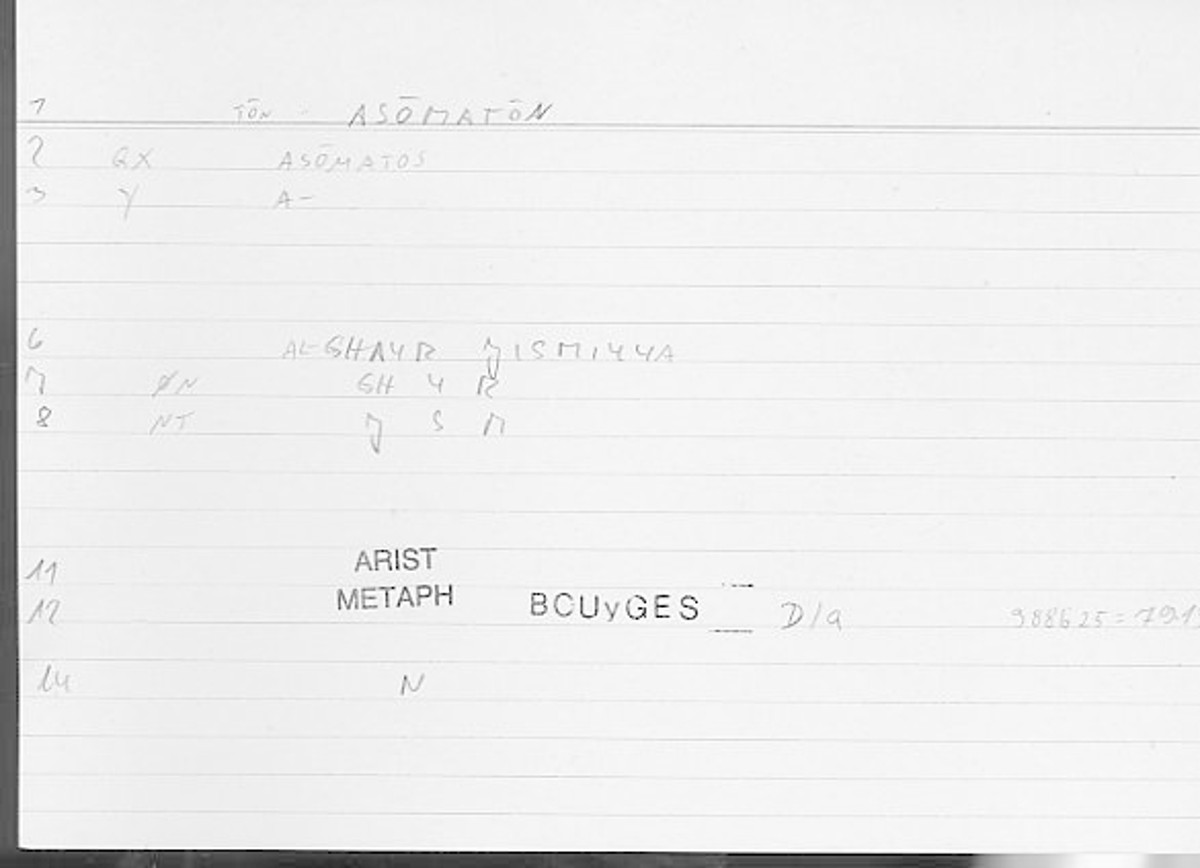 1 TŌN - ASŌMATŌN
2 QX ASŌMATOS
3 Y A-
6 AL-GHAYR JISMIYYA
7 ØN GH Y R
8 NT J S M
11 ARIST
12 METAPH BCUyGES D/a 988b25=79
14 N